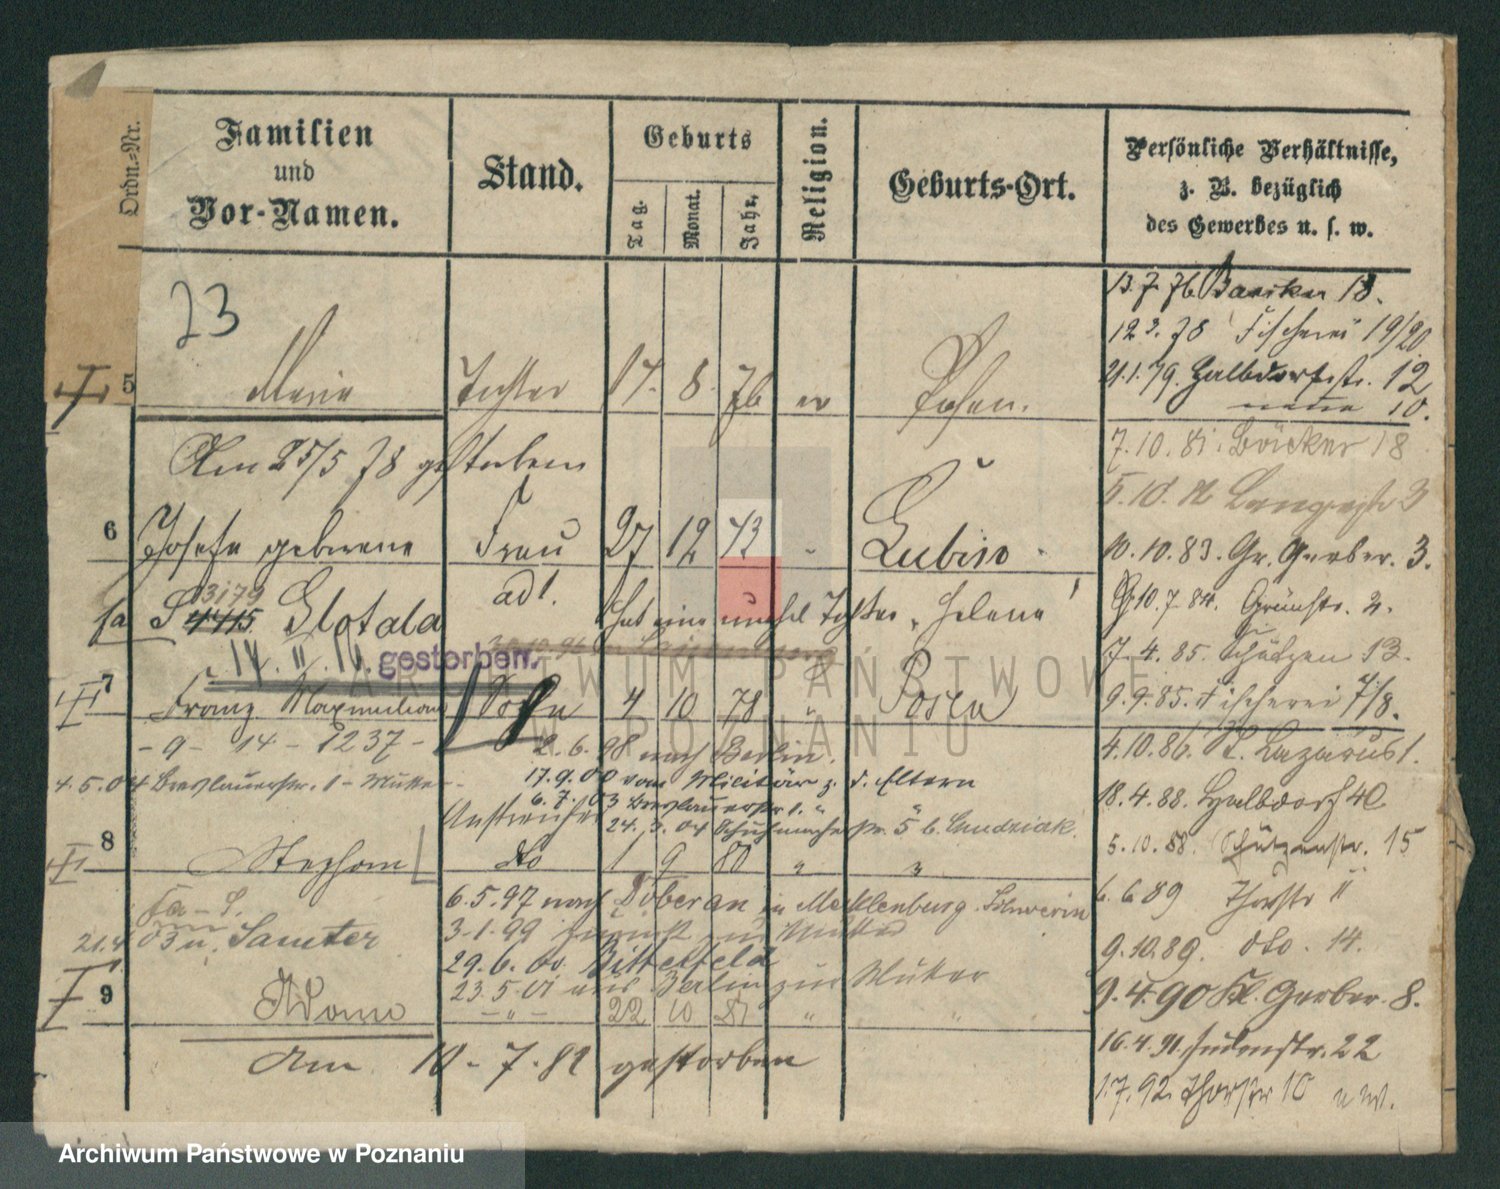 Ordn.-Nr.
Familien
und
Vor-Namen.
Stand.
Geburts
Tag.
Monat.
Jahr.
Religion.
Geburts-Ort.
Persönliche Verhältnisse,
z. B. bezüglich
des Gewerbes u. s. w.
23
5 Marie Tochter 17. 8. 76 Posen.
Am 25/5 78 gestorben
6 Josefa geborene Frau 27 12 43 " Lubin "
3179
S 4415 Glotala ad 1. Hat eine unehel Tochter „Helene"
14. 11. 16. gestorben.
7 Franz Maximilian Sohn 4 10 78 " Posen
- 9 - 14 - 1237 -
2.6.98 nach Berlin.
4.5.04 Breslauerstr. 1 - Mutter -
17.9.00 vom Militär z. d. Eltern
6.7.03 Breslauerstr 1. "
Anstreicher 24.3.04 Schuhmacher str. 5 b.
8 Stephan do 1 9 80 " "
6.5.97 nach Doberan in Mecklenburg-Schwerin
21.4 03 n. Samter
3.1.99 zurück zur Mutter
29.6.00. Bitterfeld
23.5.01 aus Berlin zur Mutter
9 Adam - " - 22 10 81 " "
Am 10 - 7 - 82 gestorben
13.7.76 Baecker 18.
12 3. 78 Fischerei 19/20
21.1.79. Halbdorfstr. 12
neue 10.
7.10.81. Bäcker 18
5.10. 82 Langestr 3
10.10.83. Gr. Gerber. 3.
10.7 84. Grünstr. 2.
7.4.85. Schützen 13.
9.9.85. Fischerei 7/8.
4.10.86. St. Lazarus 1.
18.4.88. Halbdorf 40
5.10.88. Schützenstr. 15
6.6 89 Thorstr 11
9.10.89. dto. 14.
9.4.90 Kl. Gerber. 8.
16.4.91. Judenstr. 22
1.7.92. Thorstr 10 u w.
ARCHIWUM PAŃSTWOWE
W POZNANIU
Archiwum Państwowe w Poznaniu